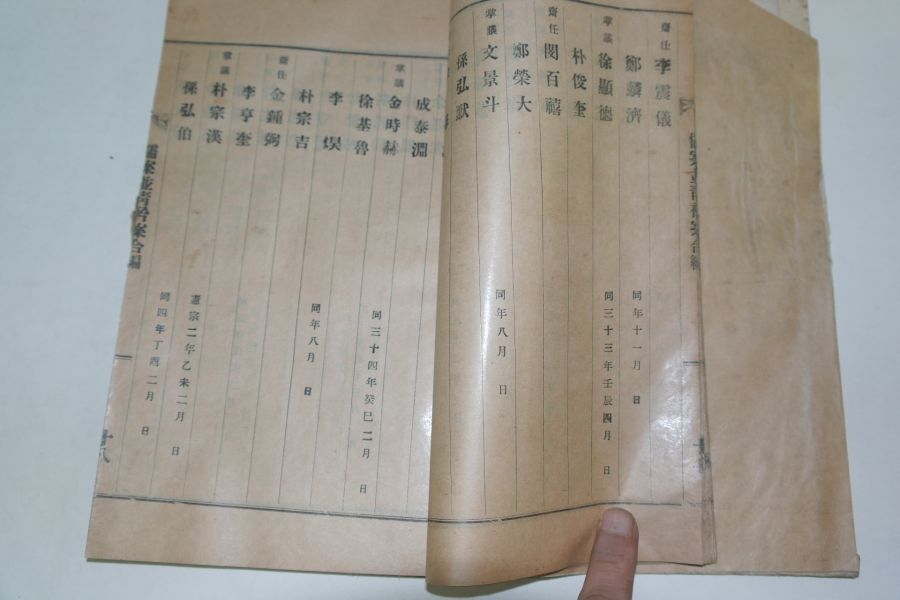 齋任 李震儀
鄭鱗濟 同年十一月 日
掌議 徐顯德 同三十三年壬辰四月 日
朴俊奎
齋任 閔百禧
鄭榮大
掌議 文景斗 同年八月 日
孫弘默
成泰淵
掌議 金時赫
徐基魯 同三十四年癸巳二月 日
李
朴宗吉 同年八月 日
齋任 金鍾弼
李亨奎
掌議 朴宗漢
孫弘伯 憲宗二年乙未二月 日
同四年丁酉二月 日
儒案並青衿案合編
廿八